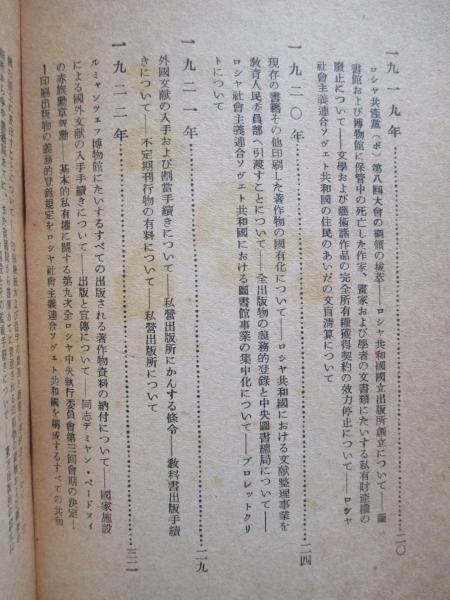 一九一九年……………………二〇
ロシヤ共産黨（ボ）第八囘大會の綱領の拔萃——ロシヤ共和國國立出版所創立について——圖
書館および博物館に保管中の死亡した作家、畫家および學者の文書類にたいする私有財產權の
廢止について——文學および藝術諸作品の完全所有權獲得契約の效力停止について——ロシヤ
社會主義連合ソヴェト共和國の住民のあいだの文盲淸算について
一九二〇年……………………二四
現存の書籍その他印刷した著作物の國有化について——ロシヤ共和國における文献整理事業を
敎育人民委員部へ引渡すことについて——全出版物の義務的登錄と中央圖書總局について——
ロシヤ社會主義連合ソヴェト共和國における圖書館事業の集中化について——プロレットクリ
トについて
一九二一年……………………二九
外國文献の入手および割當手續きについて——私營出版所にかんする條令——敎科書出版手續
きについて——不定期刊行物の有料について——私營出版所について
一九二二年……………………三二
ルミヤンツェフ博物館にたいするすべての出版される著作物資料の納付について——國家施設
による國外文献の入手手續きについて——出版と宣傳について——同志デミヤン・ベードヌイ
の赤旗勳章叙勳——基本的私有權に關する第九次全ロシヤ中央執行委員會第三囘會期の決定—
—印刷出版物の義務的登錄規定をロシヤ社會主義連合ソヴェト共和國を構成するすべての共和